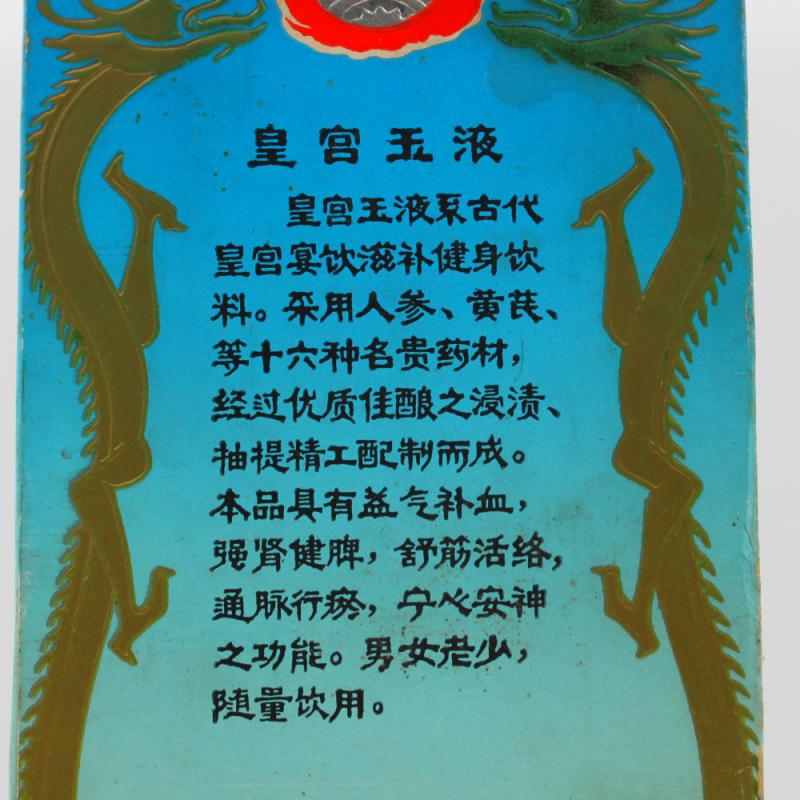 皇宫玉液
皇宫玉液系古代
皇宫宴饮滋补健身饮
料。采用人参、黄芪、
等十六种名贵药材，
经过优质佳酿之浸渍、
抽提精工配制而成。
本品具有益气补血，
强肾健脾，舒筋活络，
通脉行瘀，宁心安神
之功能。男女老少，
随量饮用。